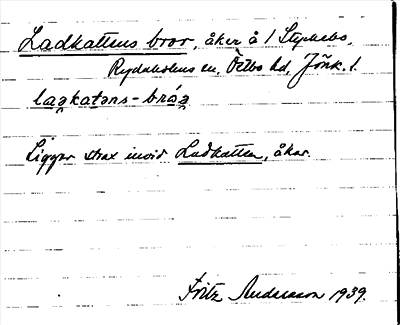 Ladkattens bror, åker å 1 Styhebo,
Rydaholms sn, Östbo hd, Jönk. l.
lagkatəns-bróg
Ligger strax invid Ladkatten, åker.
Fritz Andersson 1939.